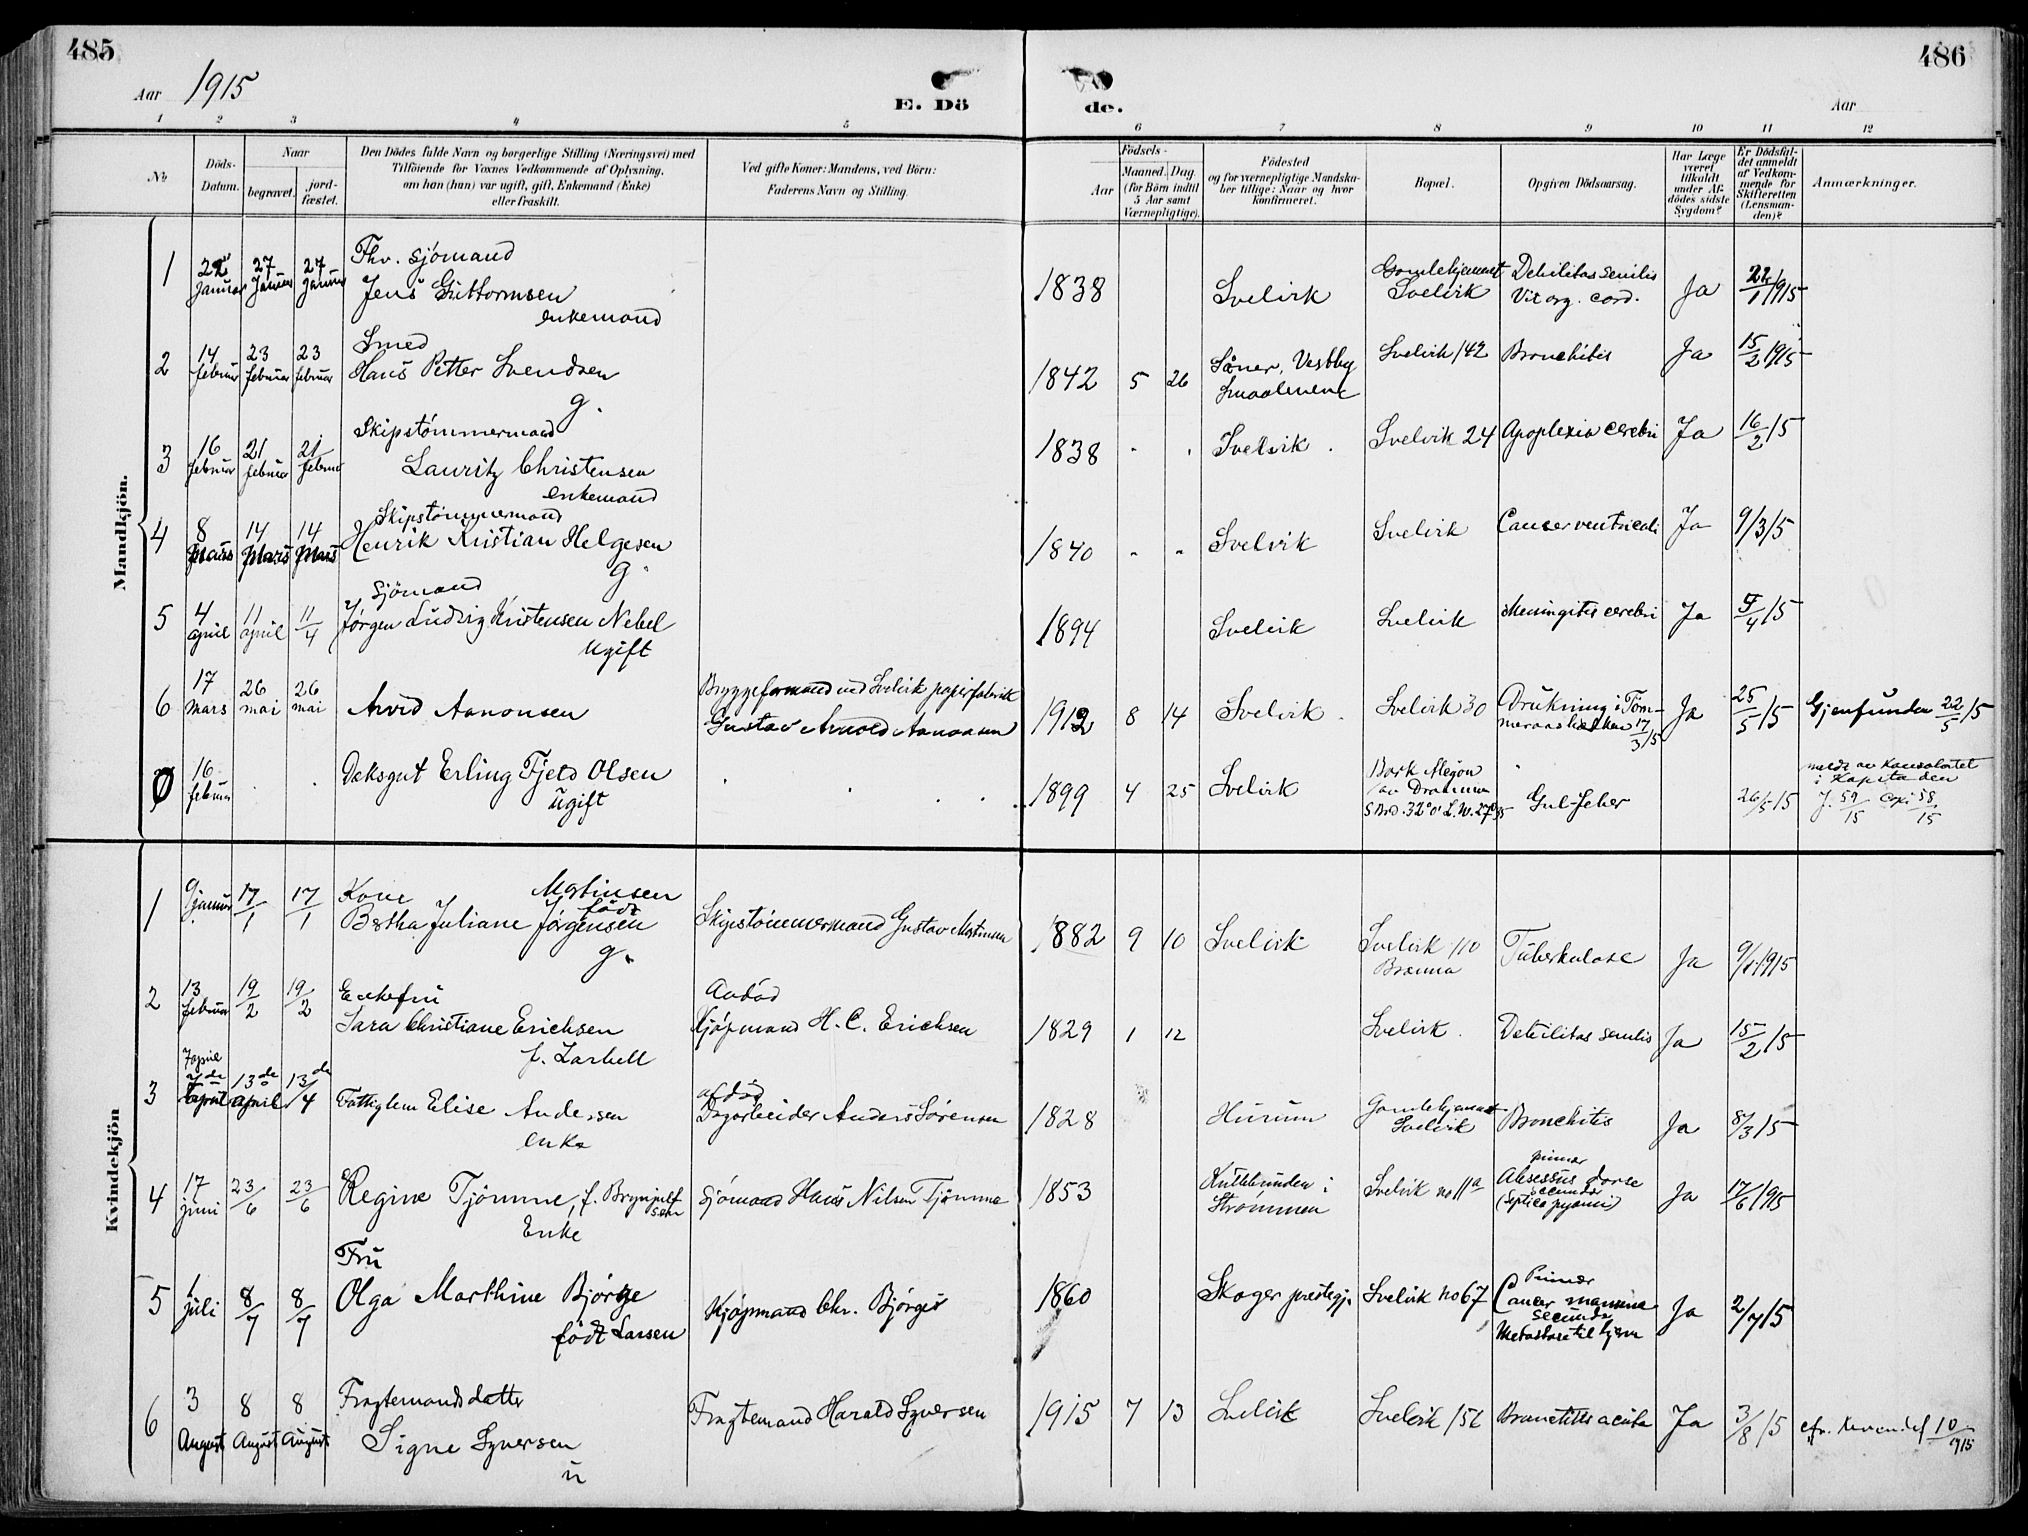 485
486
Aar 1915
E. Dö
de.
Aar
1 2 3 4 5 6 7 8 9 10 11 12
No
Döds-
Datum.
Naar
begravet.
jord-
fæstet.
Den Dödes fulde Navn og borgerlige Stilling (Næringsvei) med
Tilföiende for Voxnes Vedkommende af Oplysning,
om han (hun) var ugift, gift, Enkemand (Enke)
eller fraskilt.
Ved gifte Koner: Mandens, ved Börn:
Faderens Navn og Stilling.
Födsels-
Aar
Maaned. Dag
(for Börn indtil
5 Aar samt
Værnepligtige).
Födested
og for værnepligtige Mandska-
ber tillige: Naar og hvor
konfirmeret.
Bopæl.
Opgiven Dödsaarsag.
Har Læge
været
tilkaldt
under Af-
dödes sidste
Sygdom?
Er Dödsfal-
det anmeldt
af Vedkom-
mende for
Skifteretten
(Lensman-
den)?
Anmærkninger.
Mandkjön.
1 22 Januar 27 Januar 27 Januar
Fhv. sjömand
Jens Guttormsen
enkemand
1838 Svelvik Gamlehjemmet Svelvik Debilitas senilis Vit. org. cord. Ja 22/1 1915
2 14 februar 23 februar 23 februar
Smed
Hans Petter Svendsen
g.
1842 5 26 Såner, Vestby Smaalenene Svelvik 142 Bronchitis Ja 15/2 1915
3 16 februar 21 februar 21 februar
Skipstømmermand
Lauritz Christensen
enkemand
1838 Svelvik Svelvik 24 Apoplexia cerebri Ja 16/2 15
4 8 Mars 14 Mars 14 Mars
Skipstømmermand
Henrik Kristian Helgesen
g.
1840 Svelvik Svelvik Cancer ventriculi Ja 9/3 15
5 4 april 11 april 11/4
Sjömand
Jørgen Ludvig Kristensen Nebel
Ugift
1894 Svelvik Svelvik Meningitis cerebri Ja 5/4 15
6 17 mars 26 mai 26 mai
Arvid Aanonsen
Bryggeformand ved Svelvik papirfabrik
Gustav Arnold Aanonsen
1912 8 14 Svelvik Svelvik 30 Drukning i Töm- 17/3 15 Ja 25/5 15 Gjenfunden 22/5 15
0 16 februar
Deksgut Erling Fjeld Olsen
ugift
1899 4 25 Svelvik Bark av Drammen Gul-feber 26/5 15
meldt av Konsulatet
i
J. 59/15 58/15
Kvindekjön
1 9 januar 17/1 17/1
Kone Martinsen
født
Bertha Juliane Jørgensen
g.
Skipstömmermand Gustav Martinsen
1882 9 10 Svelvik Svelvik 110 Tuberkulose Ja 9/1 1915
2 13 februar 19/2 19/2
Enkefru
Sara Christiane Erichsen
Avdöd
Kjöpmand H. C. Erichsen
1829 1 12 Svelvik. Debilitas senilis Ja 15/2 15
3 7 april 13de april 13/4
Fattiglem Elise Andersen
enke
afdöd
Dagarbeider Anders Sörensen
1828 Hurum Gamlehjemmet Svelvik Bronchitis Ja 8/3 15
4 17 juni 23/6 23/6
Regine Tjömme, f. Brynjulfsen
Enke
Sjömand Hans Nilsen Tjömme
1853 i Strömmen Svelvik no 11a primær Absessus dorse secundær (Septico pyæmi) Ja 17/6 1915
5 1 juli 8/7 8/7
Fru
Olga Marthine Bjørge
född Larsen
Kjöpmand Chr. Bjørge
1860 Skoger prestegj. Svelvik no 67 Primær Cancer mammæ secundær Metastase til hjern Ja 2/7 15
6 3 August 8 August 8 August
Fragtemandsdatter
Signe Syversen
u
Fragtemand Harald Syversen
1915 7 13 Svelvik Svelvik 156 Bronchitis acuta Ja 3/8 15 cfr. 10/1915